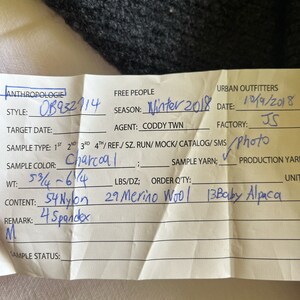 ANTHROPOLOGIE FREE PEOPLE URBAN OUTFITTERS
STYLE: OB932714 SEASON: Winter 2018 DATE: 10/9/2018
TARGET DATE: AGENT: CODDY TWN FACTORY: JS
SAMPLE TYPE: 1ST 2ND 3RD 4TH/ REF./ SZ. RUN/ MOCK/ CATALOG/ SMS / photo
SAMPLE COLOR: Charcoal ; SAMPLE YARN: ✓ PRODUCTION YARN
WT: 5 3/4 ~ 6 1/4 LBS/DZ; ORDER QTY: UNIT
CONTENT: 54 Nylon 29 Merino Wool 13 Baby Alpaca
REMARK: 4 Spandex
M
SAMPLE STATUS: